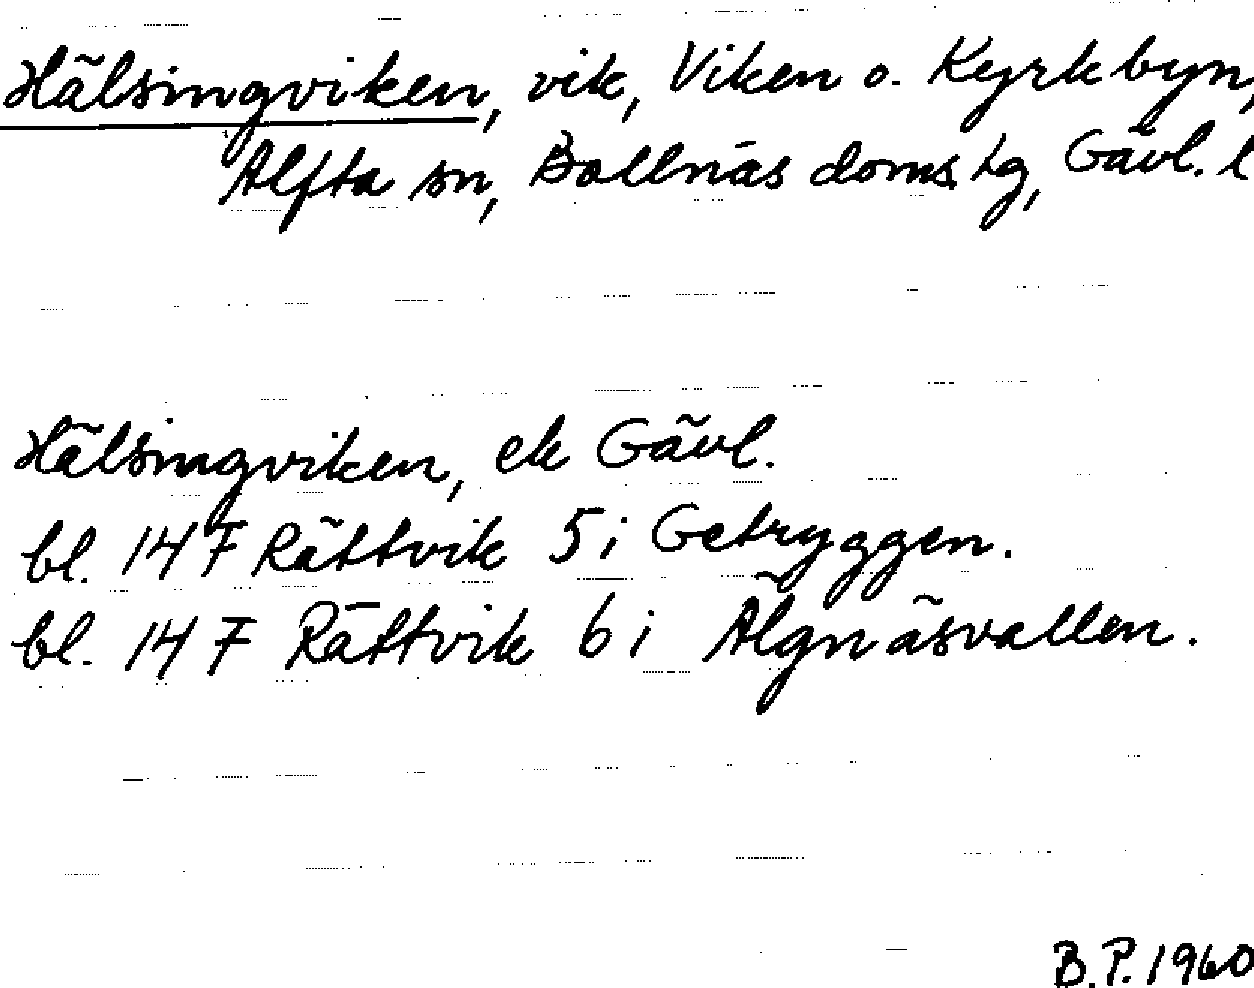 Hälsingviken, vik, Viken o. Kyrkbyn,
Alfta sn, Bollnäs doms. tg, Gävl. l
Hälsingviken, ek Gävl.
bl. 14 F Rättvik 5 i Getryggen.
bl. 14 F Rättvik 6 i Älgnäsvallen.
B.P. 1960